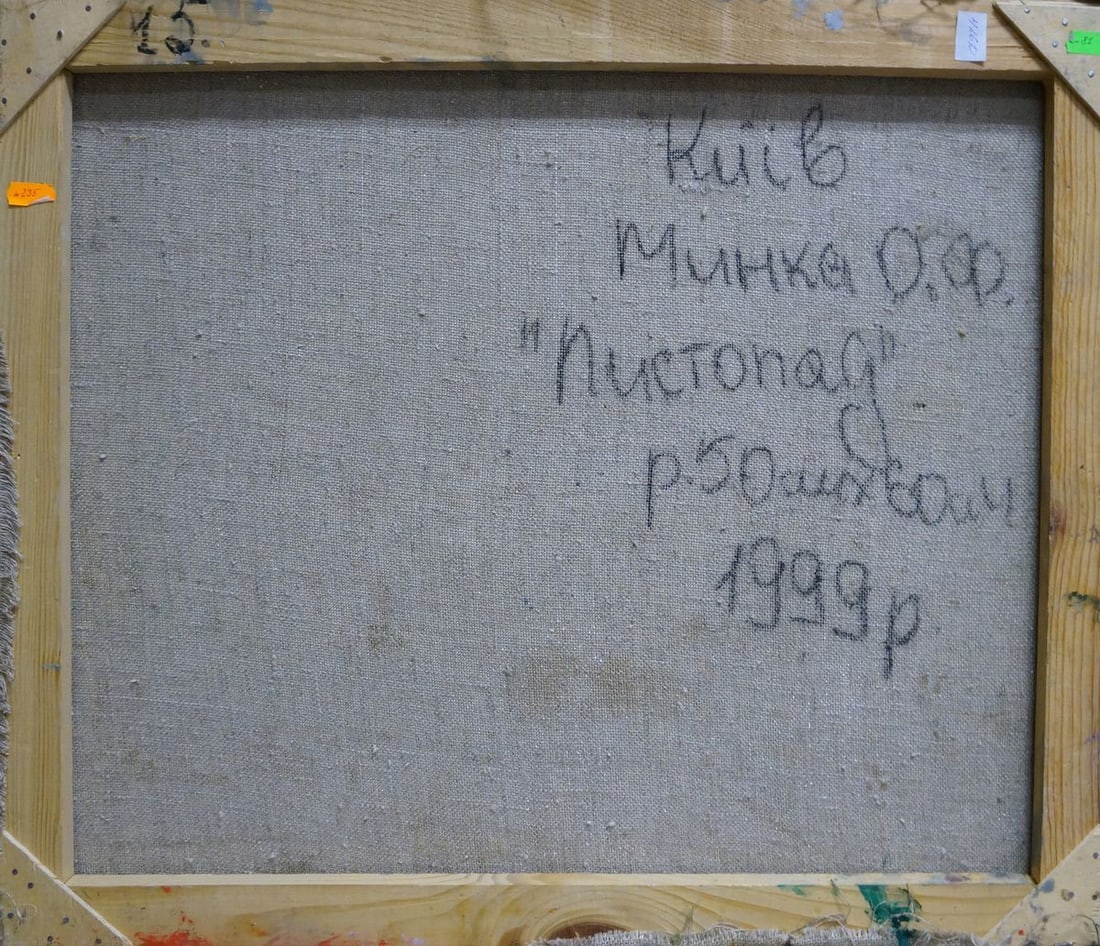 15.
4235
Київ
Минка О.Ф.
"Листопад"
р.50смх60см
1999р